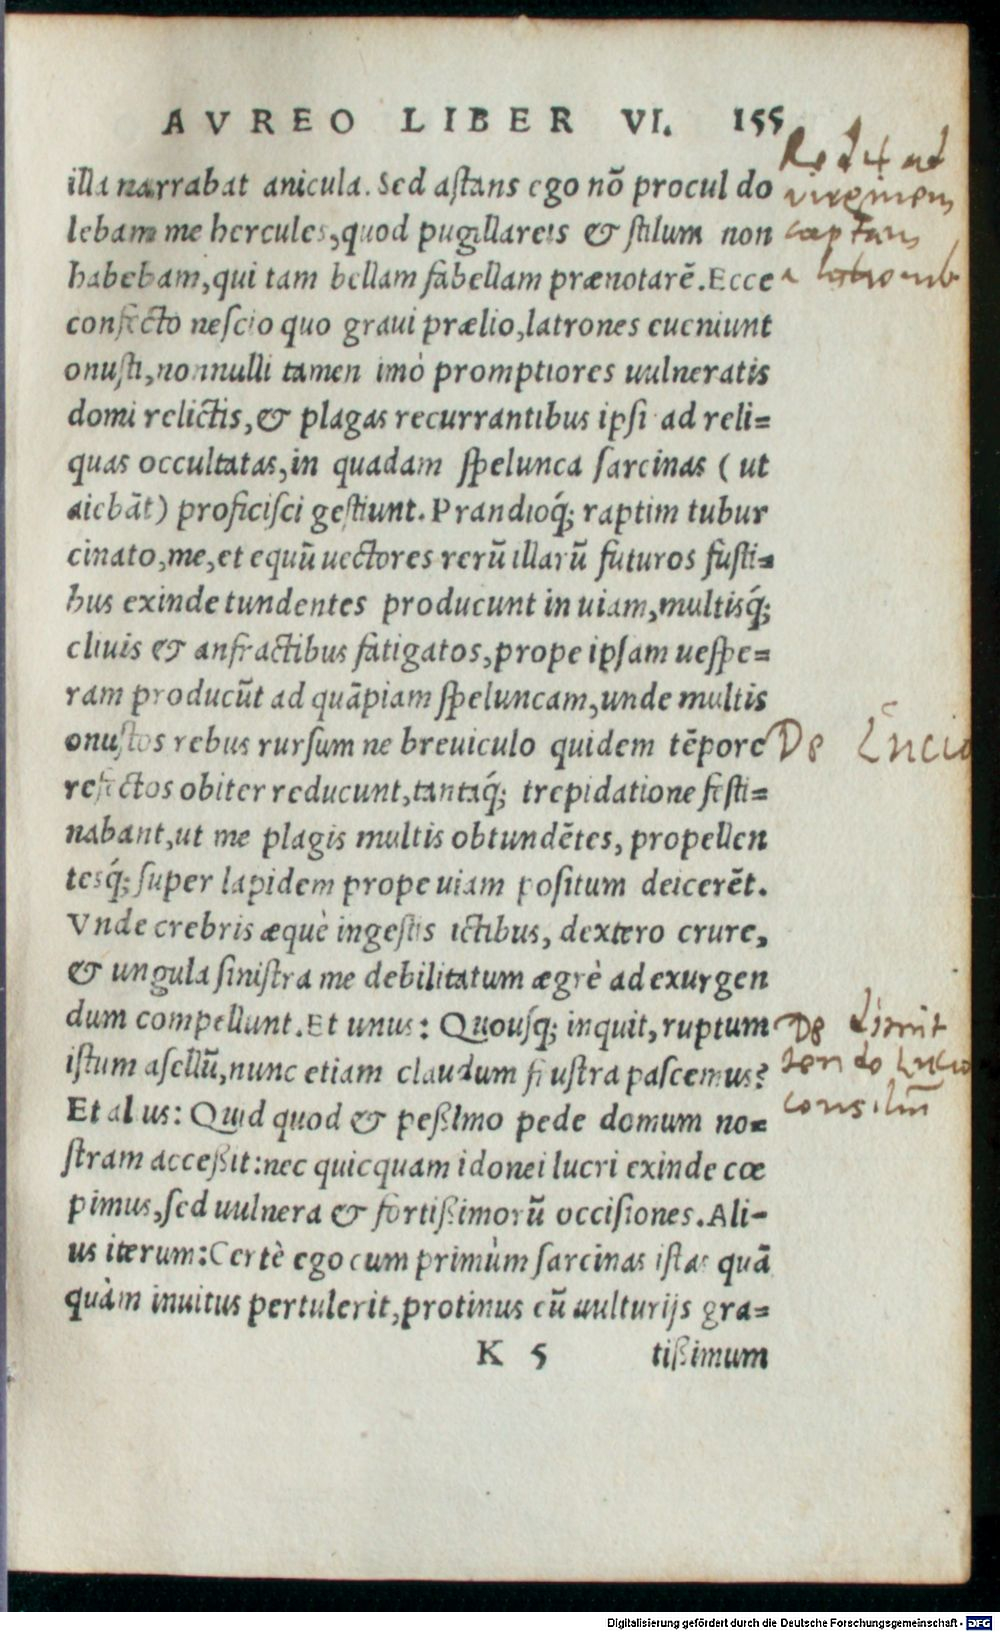 AVREO LIBER VI. 155
illa narrabat anicula. Sed aſtans ego nõ procul do
lebam me hercules, quod pugillareis & ſtilum non
habebam, qui tam bellam fabellam prænotarẽ. Ecce
confecto neſcio quo graui prælio, latrones eueniunt
onuſti, nonnulli tamen imò promptiores uulneratis
domi relictis, & plagas recurrantibus ipſi ad reli=
quas occultatas, in quadam ſpelunca ſarcinas (ut
aiebãt) proficiſci geſtiunt. Prandioq́; raptim tubur
cinato, me, et equũ uectores rerũ illarũ futuros fuſti=
bus exinde tundentes producunt in uiam, multisq́;
cliuis & anfractibus fatigatos, prope ipſam ueſpe=
ram producũt ad quãpiam ſpeluncam, unde multis
onuſtos rebus rurſum ne breuiculo quidem tẽpore
refectos obiter reducunt, tantaq́; trepidatione feſti=
nabant, ut me plagis multis obtundẽtes, propellen
tesq́; ſuper lapidem prope uiam poſitum deicerẽt.
Vnde crebris æquè ingeſtis ictibus, dextero crure,
& ungula ſiniſtra me debilitatum ægrè ad exurgen
dum compellunt. Et unus: Quouſq; inquit, ruptum
iſtum aſellũ, nunc etiam claudum fruſtra paſcemus?
Et alius: Quid quod & peßimo pede domum no=
ſtram acceßit: nec quicquam idonei lucri exinde cœ
pimus, ſed uulnera & fortißimorũ occiſiones. Ali-
us iterum: Certè ego cum primùm ſarcinas iſtas quã
quàm inuitus pertulerit, protinus cũ uulturijs gra=
K 5 tißimum
Redit ad
virginem
captam
a latronib
De Lucio
De
Lucio
consiliũ
Digitalisierung gefördert durch die Deutsche Forschungsgemeinschaft - DFG